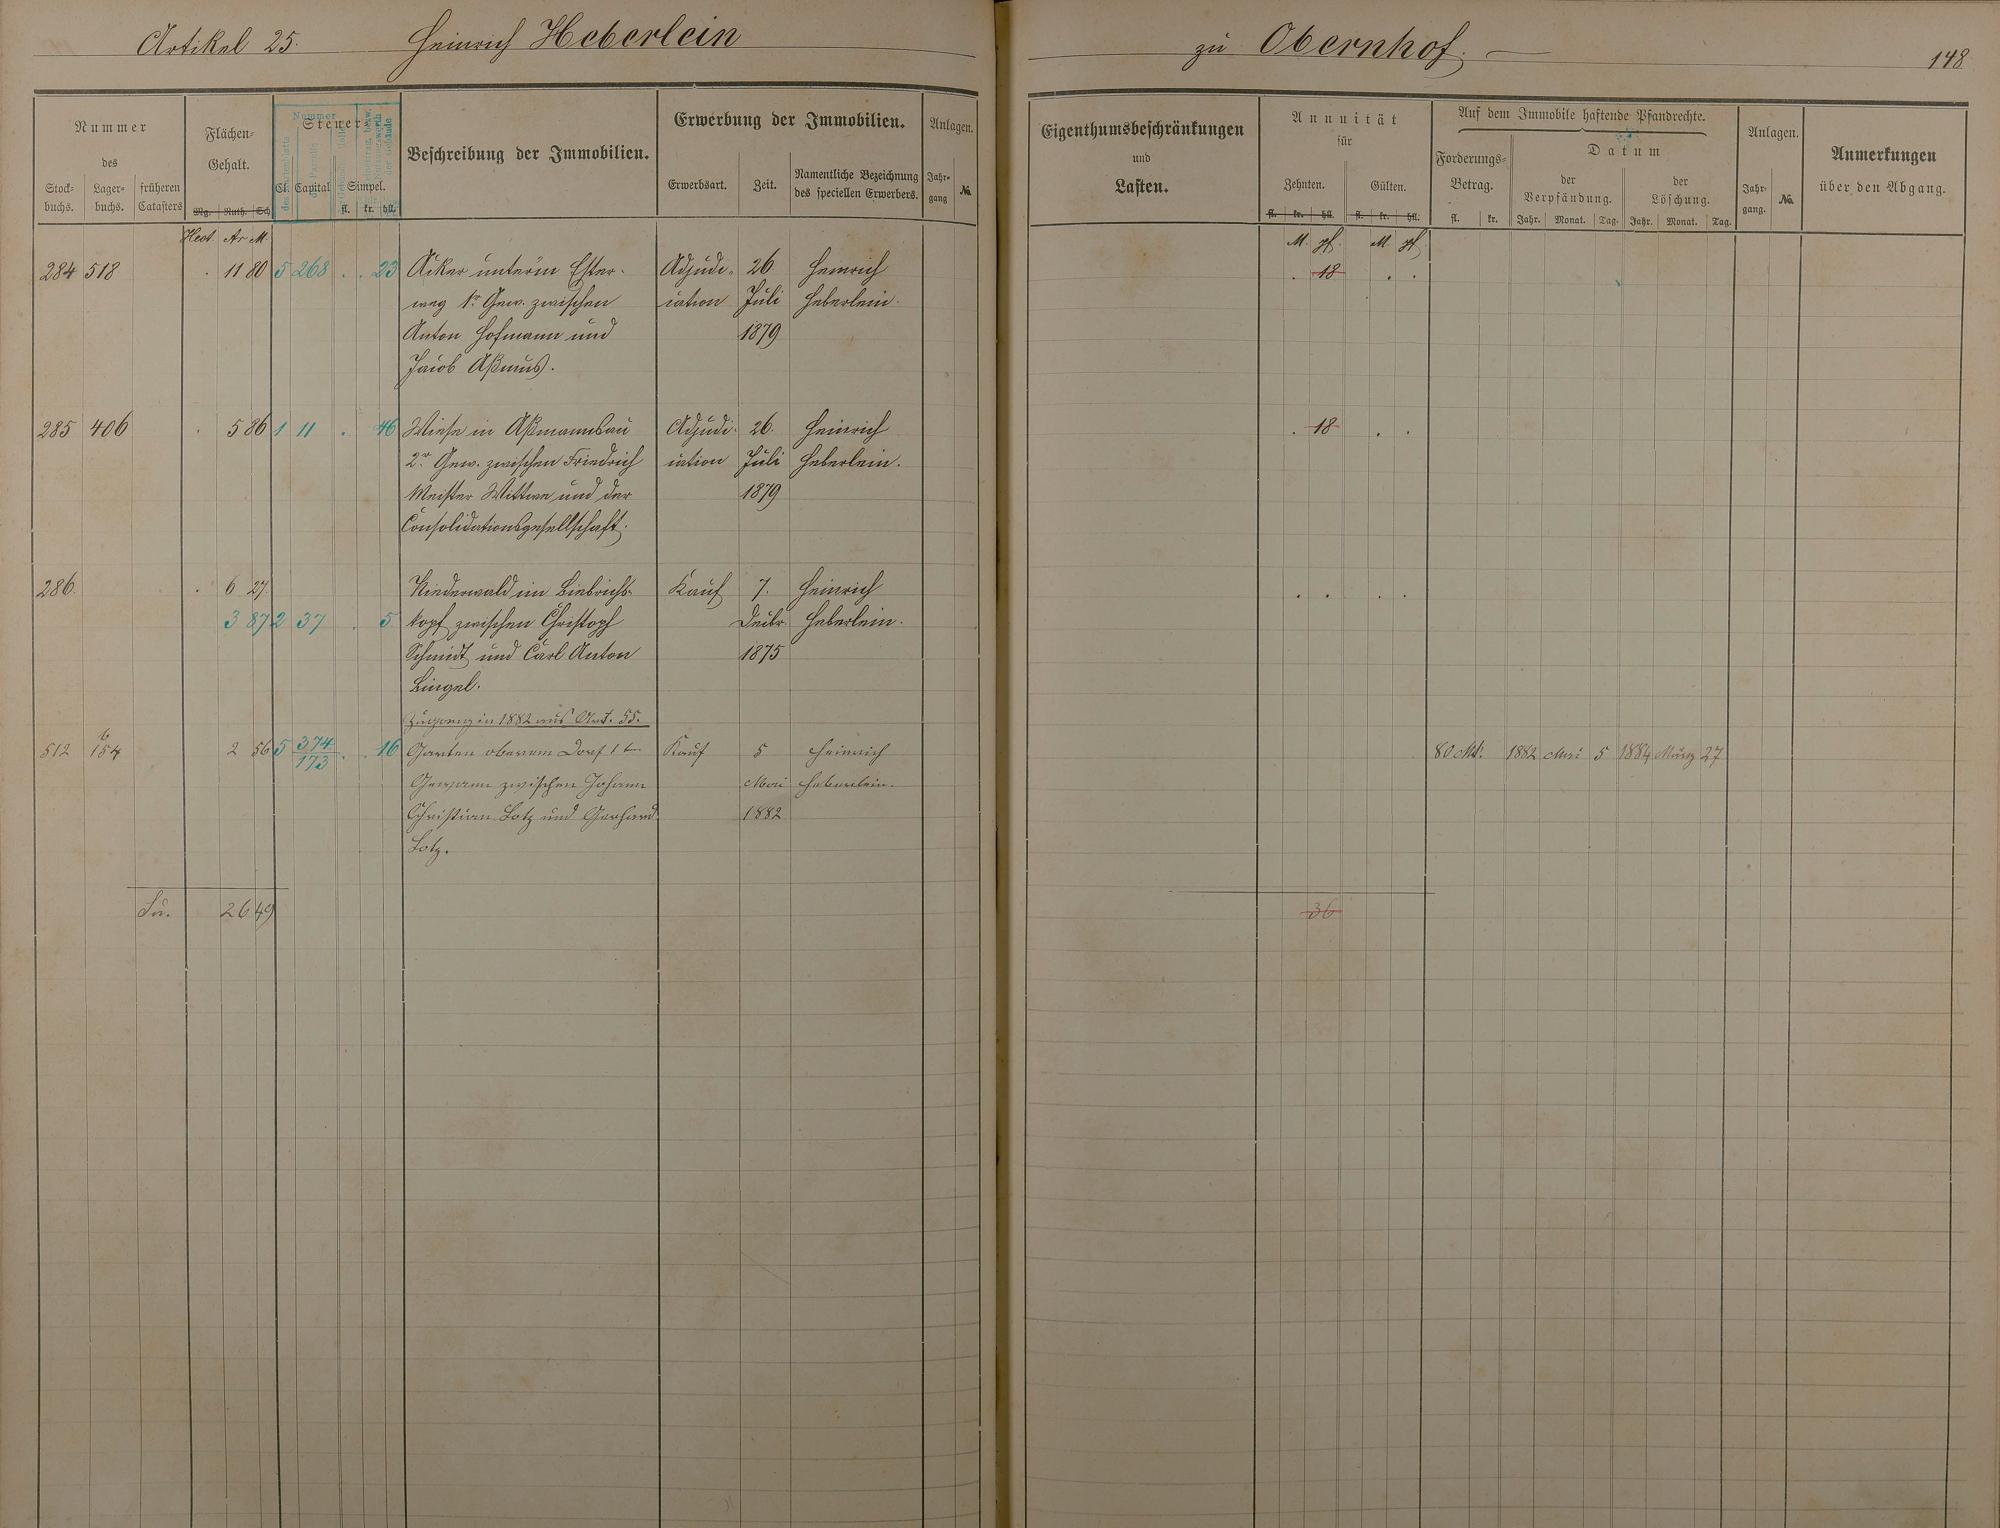 Artikel 25. Heinrich Heberlein zu Obernhof. 148
Nummer
des
Stock-
buchs.
Lager-
buchs.
früheren
Catasters
Flächen-
Gehalt.
Mg. Ruth. Sch
Steuer-
Cl. Capital Simpel.
fl. kr. hll.
Nummer
des Kartenblatts
der Parzelle
Beschreibung der Immobilien.
Erwerbung der Immobilien.
Erwerbsart. Zeit.
Namentliche Bezeichnung
des speciellen Erwerbers.
Anlagen.
Jahr-
gang
No.
Eigenthumsbeschränkungen
und
Lasten.
Annuität
für
Zehnten. Gülten.
fl. kr. hll. fl. kr. hll.
Auf dem Immobile haftende Pfandrechte.
Forderungs-
Betrag.
fl. kr.
Datum
der
Verpfändung.
Jahr. Monat. Tag.
der
Löschung.
Jahr. Monat. Tag.
Anlagen.
Jahr-
gang.
No.
Anmerkungen
über den Abgang.
Hect. Ar M. M. pf. M. pf.
284 518 . 11 80 5 268 . . 23 Acker unterm Ester- Adjudi- 26. Heinrich . 18 . .
weg 1r Gew. zwischen cation Juli Heberlein.
Anton Hofmann und 1879
Jacob Aßmus.
285 406 . 5 86 1 11 . 46 Wiese in Aßmannsau Adjudi- 26. Heinrich . 18 . .
2r Gew. zwischen Friedrich cation Juli Heberlein.
Meister Wittwe und der 1879
Consolidationsgesellschaft.
286. . 6 27. Niederwald im Biebrichs- Kauf 7. Heinrich . . . .
3 87 2 37 . 5 kopf zwischen Christoph Decbr. Heberlein.
Schmidt und Carl Anton 1875
Bingel.
Zugang in 1882 aus Art. 55.
512 154 2 56 5 374/173 . . 16 Garten oberem Dorf 1te Kauf 5 Heinrich 80 M. 1882 Mai 5 1884 März 27
Gewann zwischen Johann Mai Heberlein.
Christian Lotz und Gerhard 1882
Lotz.
Su. 26 49 36